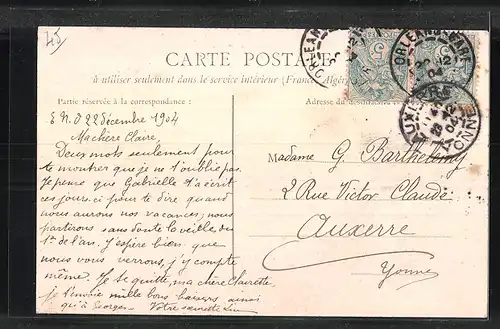 45
CARTE POSTALE
à utiliser seulement dans le service intérieur (France, Algér
Partie réservée à la correspondance :
E. N. O 22 décembre 1904
Ma chère Claire,
Deux mots seulement pour
te montrer que je ne t'oublie pas.
Je pense que Gabrielle t'a écrit
ces jours-ci pour te dire quand
nous aurons nos vacances; nous
partirons sans doute la veille du
1er de l'an. J'espère bien que
nous vous verrons, j'y compte
même. Je te quitte, ma chère Clairette
je t'envoie mille bons baisers ainsi
qu'à Georges. Votre sœurette
ORLEANS
ORLEANS GARE
AUXERRE
YONNE
Adresse du destinataire
Madame G. Barthelemy
2 Rue Victor Claude
Auxerre
Yonne